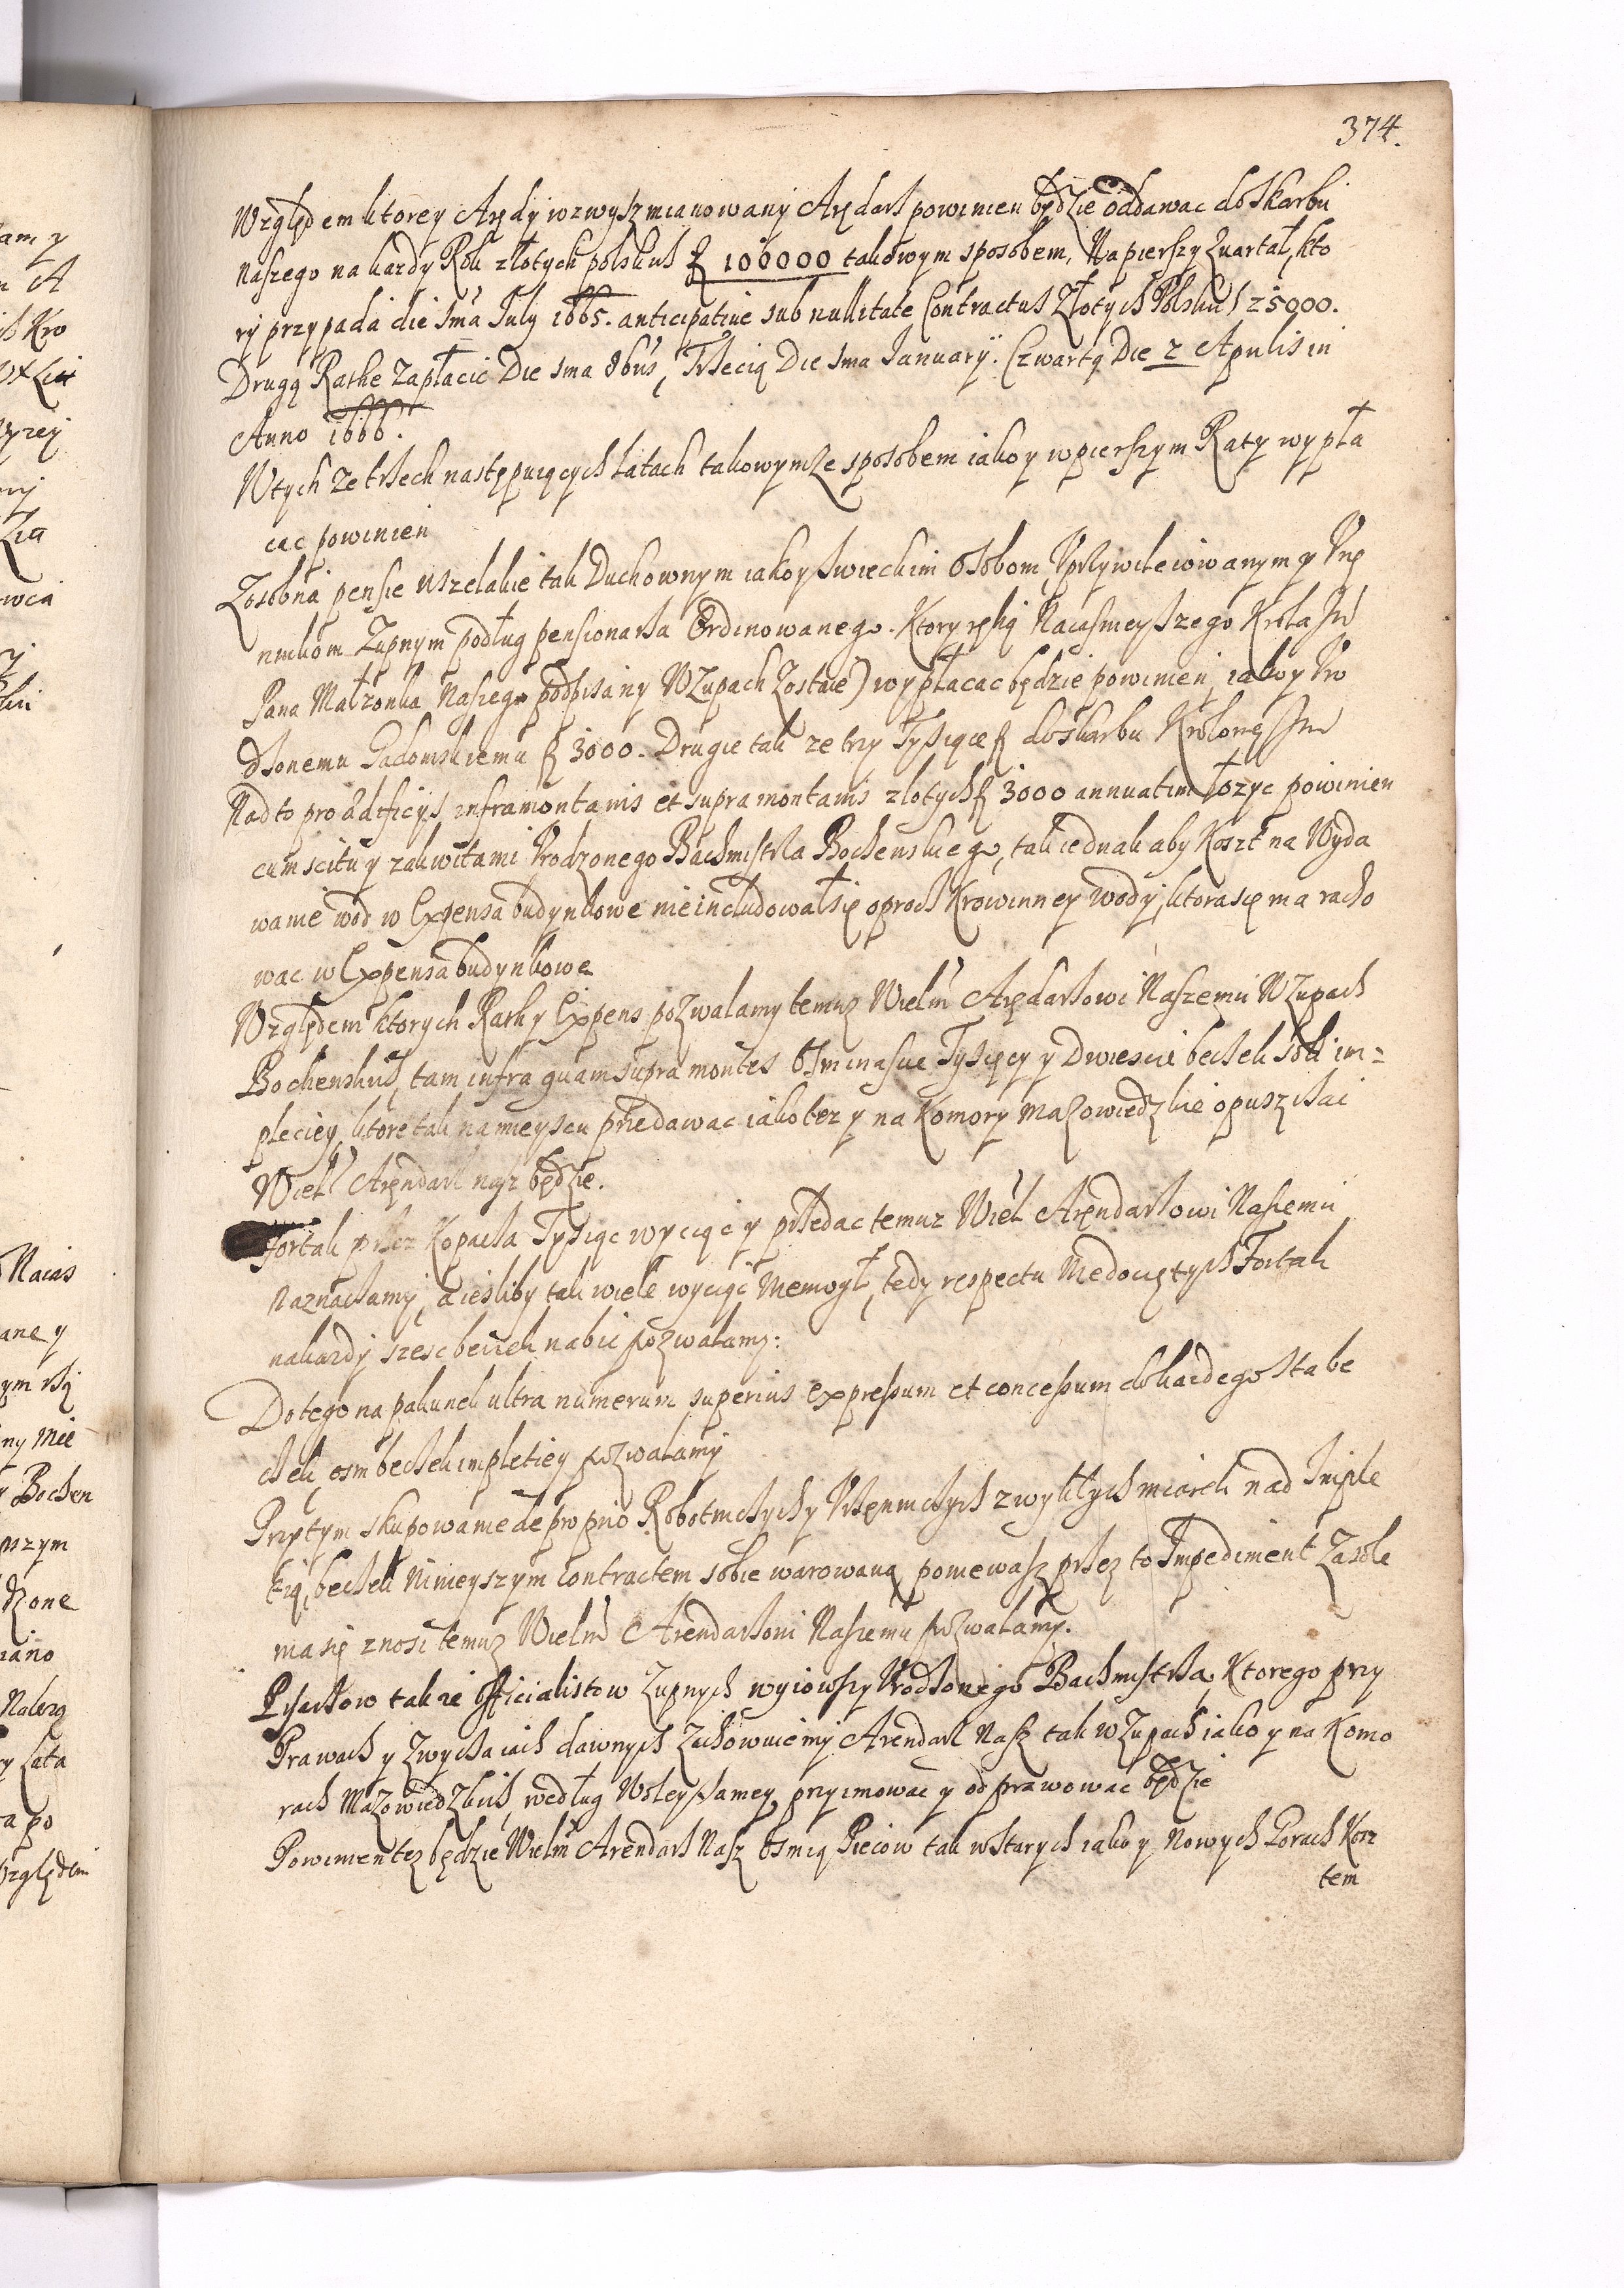 374.
Względem ktorey Arędy wzwysz mianowany Arędarz powinien będzie oddawac do Skarbu
naszego na kazdy Rok złotych polskich f 100000 takowym sposobem, Na pierszy Quartał, kto
ry przypada die 1ma July 1665. anticipative sub nullitate Contractus Złotych Polskich 25000.
Drugą Rathe zapłacic Die 1ma 8bris, Trzecią Die 1ma January. Czwartą Die 2 Aprilis in
Anno 1666.
W tych ze trzech następuiących Latach takowymze sposobem iako y w pierszym Raty wypła
cac powinien
Zosobna pensie wszelakie tak Duchownym iako y Swieckim Osobom Uprzywileiowanym y Urzę
nnikom Zupnym podług pensionarza Ordinowanego. Ktory ręką Naiasnieyszego Krola Jm
Pana Małzonka Naszego podpisany W Zupach Zostaie) wypłacac będzie powinien, iako y Uro
dzonemu Gadomskiemu f 3000. Drugie tak ze trzy Tysiące f do skarbu Krolowey Jm
Nad to pro Ædificijs inframontanis et supramontanis złotych f 3000 annuatim łozyc powinien
cum scitu y zakwitami Urodzonego Bachmistrza Bochenskiego, tak iednak aby Koszt na Wyda
wanie wod w Expensa budynkowe nie includował się oprocz Krowinney wody, ktora się ma racho
wac w Expensa budynkowe
Względem ktorych Rath y Expens pozwalamy temuz Wielm Arędarzowi Naszemu W Zupach
Bochenskich, tam infra quam supra montes Osminascie Tysięcy y Dwiescie beczek soli im=
pleciey, ktore tak na mieyscu przedawac iako tez y na Komory Mazowiedzkie opuszczac
Wiel Arędarz nasz będzie.
Fortali przez Kopacza Tysiąc wyciąc y przedac temuz Wiel Arendarzowi Naszemu
Naznaczamy, a iesliby tak wiele wyciąc Niemogł, tedy respectu Niedociętych Fortali
na kazdy szesc beczek nabic pozwalamy:
Do tego na pakunek ultra numerum superius expressum et concessum do kazdego sta be
czek osm beczek impletiey pozwalamy
Przytym skupowanie de proprio Robotniczych y Urzęniczych zwykłych miarek nad Imple
tią, beczek Ninieyszym Contractem sobie warowaną poniewasz przez to Impediment Zasole
nia się znosi temuz Wielm Arendarzowi Naszemu pozwalamy.
Pisarzow takze Officialistow Zupnych wyiowszy Urodzonego Bachmistrza, Ktorego przy
Prawach y Zwyczaiach dawnych Zachowuiemy Arendarz Nasz tak w Zupach iako y na Komo
rach Mazowiedzkich, według Woley samey przyimowac y odprawowac będzie
Powinien tez będzie Wielm Arendarz Nasz Osmią Piecow tak w Starych iako y Nowych Gorach Kosz
tem